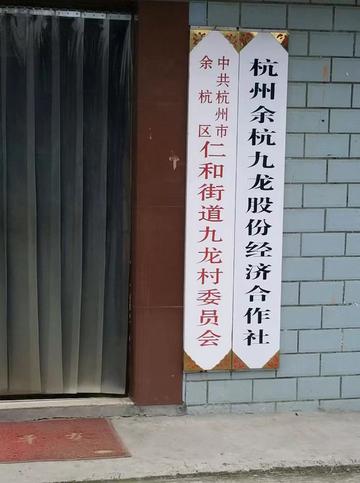 中共杭州市
余杭区
仁和街道九龙村委员会
杭州余杭九龙股份经济合作社